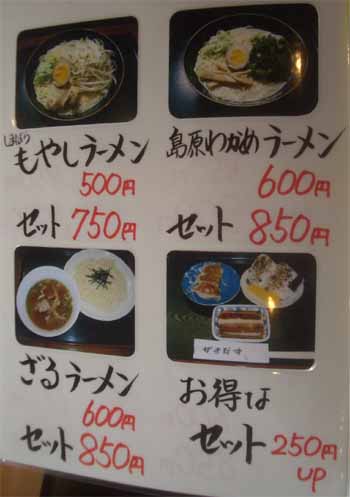 もやしラーメン
500円
セット 750円
島原わかめラーメン
600円
セット 850円
ざるラーメン
600円
セット 850円
お得な
セット 250円
UP